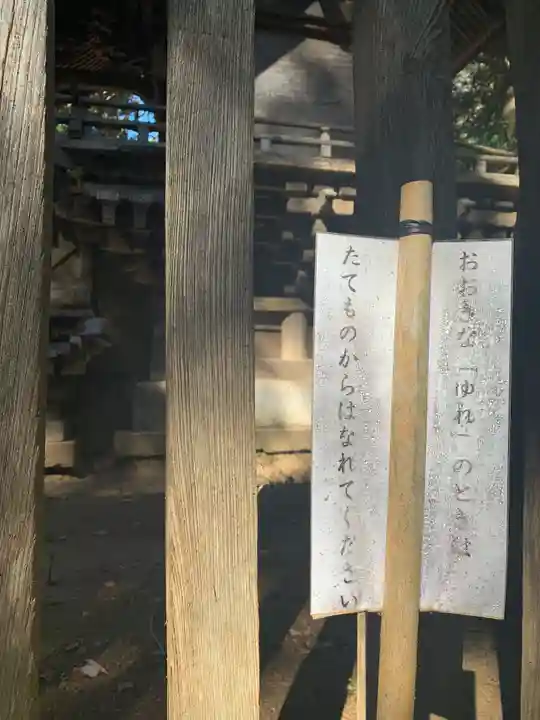 おおきな「ゆれ」のときは
たてものからはなれてください